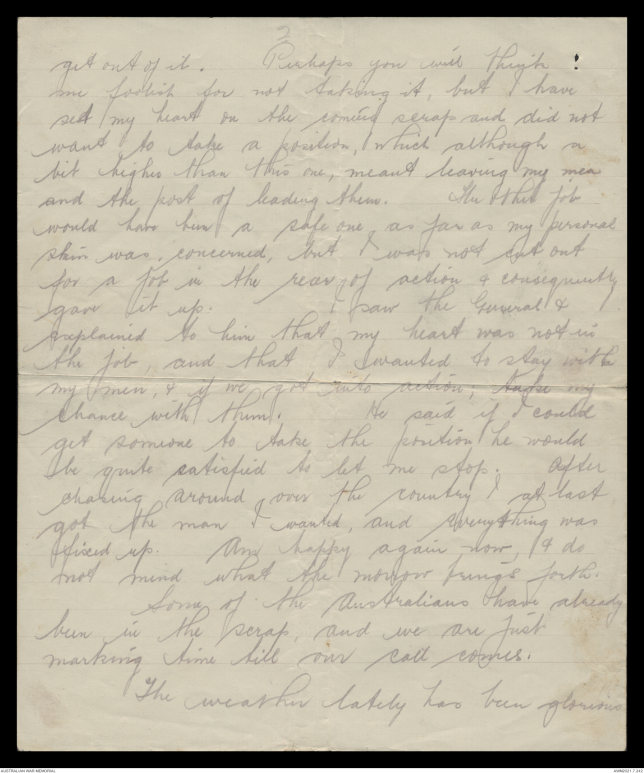 2
get out of it. Perhaps you will think
me foolish for not taking it, but I have
set my heart on the coming scrap and did not
want to take a position, which although a
bit higher than this one, meant leaving my men
and the post of leading them. The other job
would have been a safe one, as far as my personal
skin was concerned, but I was not cut out
for a job in the rear of action & consequently
gave it up. I saw the General &
explained to him that my heart was not in
the job, and that I wanted to stay with
my men, & if we got into action, take my
chance with them. He said if I could
get someone to take the position he would
be quite satisfied to let me stop. After
chasing around over the country I at last
got the man I wanted, and everything was
fixed up. Am happy again now, & do
not mind what the morrow brings forth.
Some of the Australians have already
been in the scrap, and we are just
marking time till our call comes.
The weather lately has been glorious
AUSTRALIAN WAR MEMORIAL
AWM2021.7.342